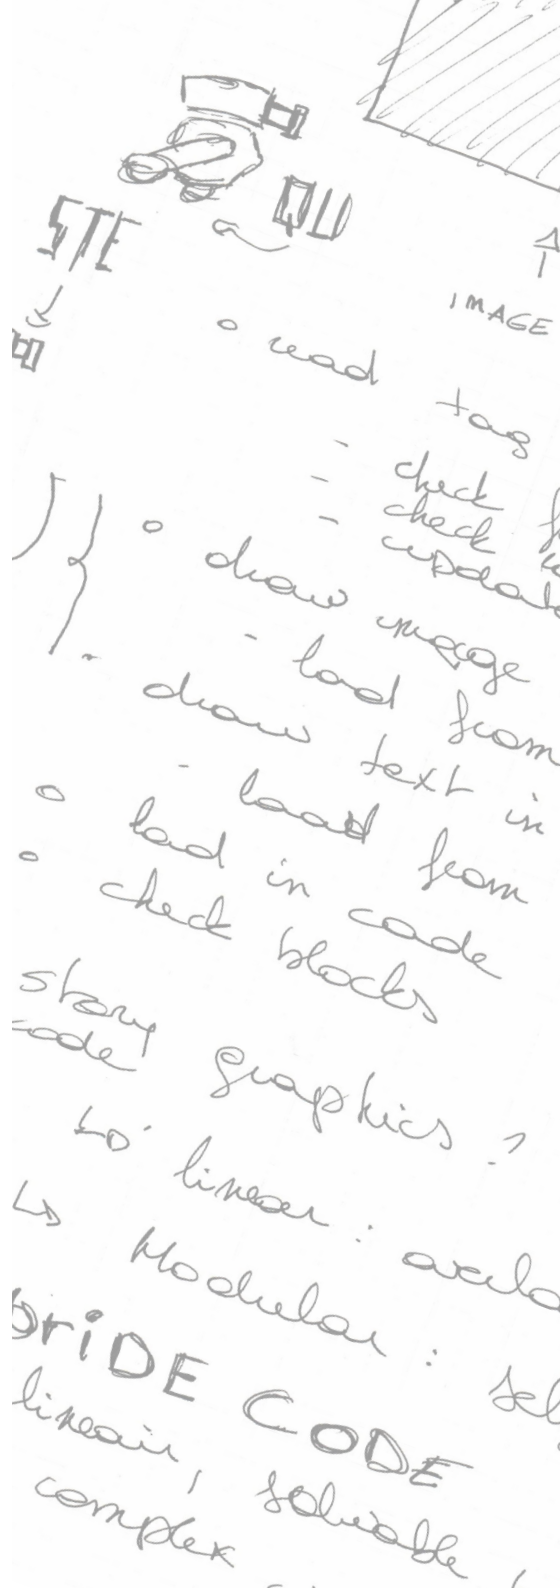 QU
STE
IMAGE
read tag
- check
- check
- update
draw image
- load from
draw text in
- load from
load in code
check blocks
story graphics?
code
↳ linear:
↳ Modular:
BRIDE CODE
lineair, solvable,
complex